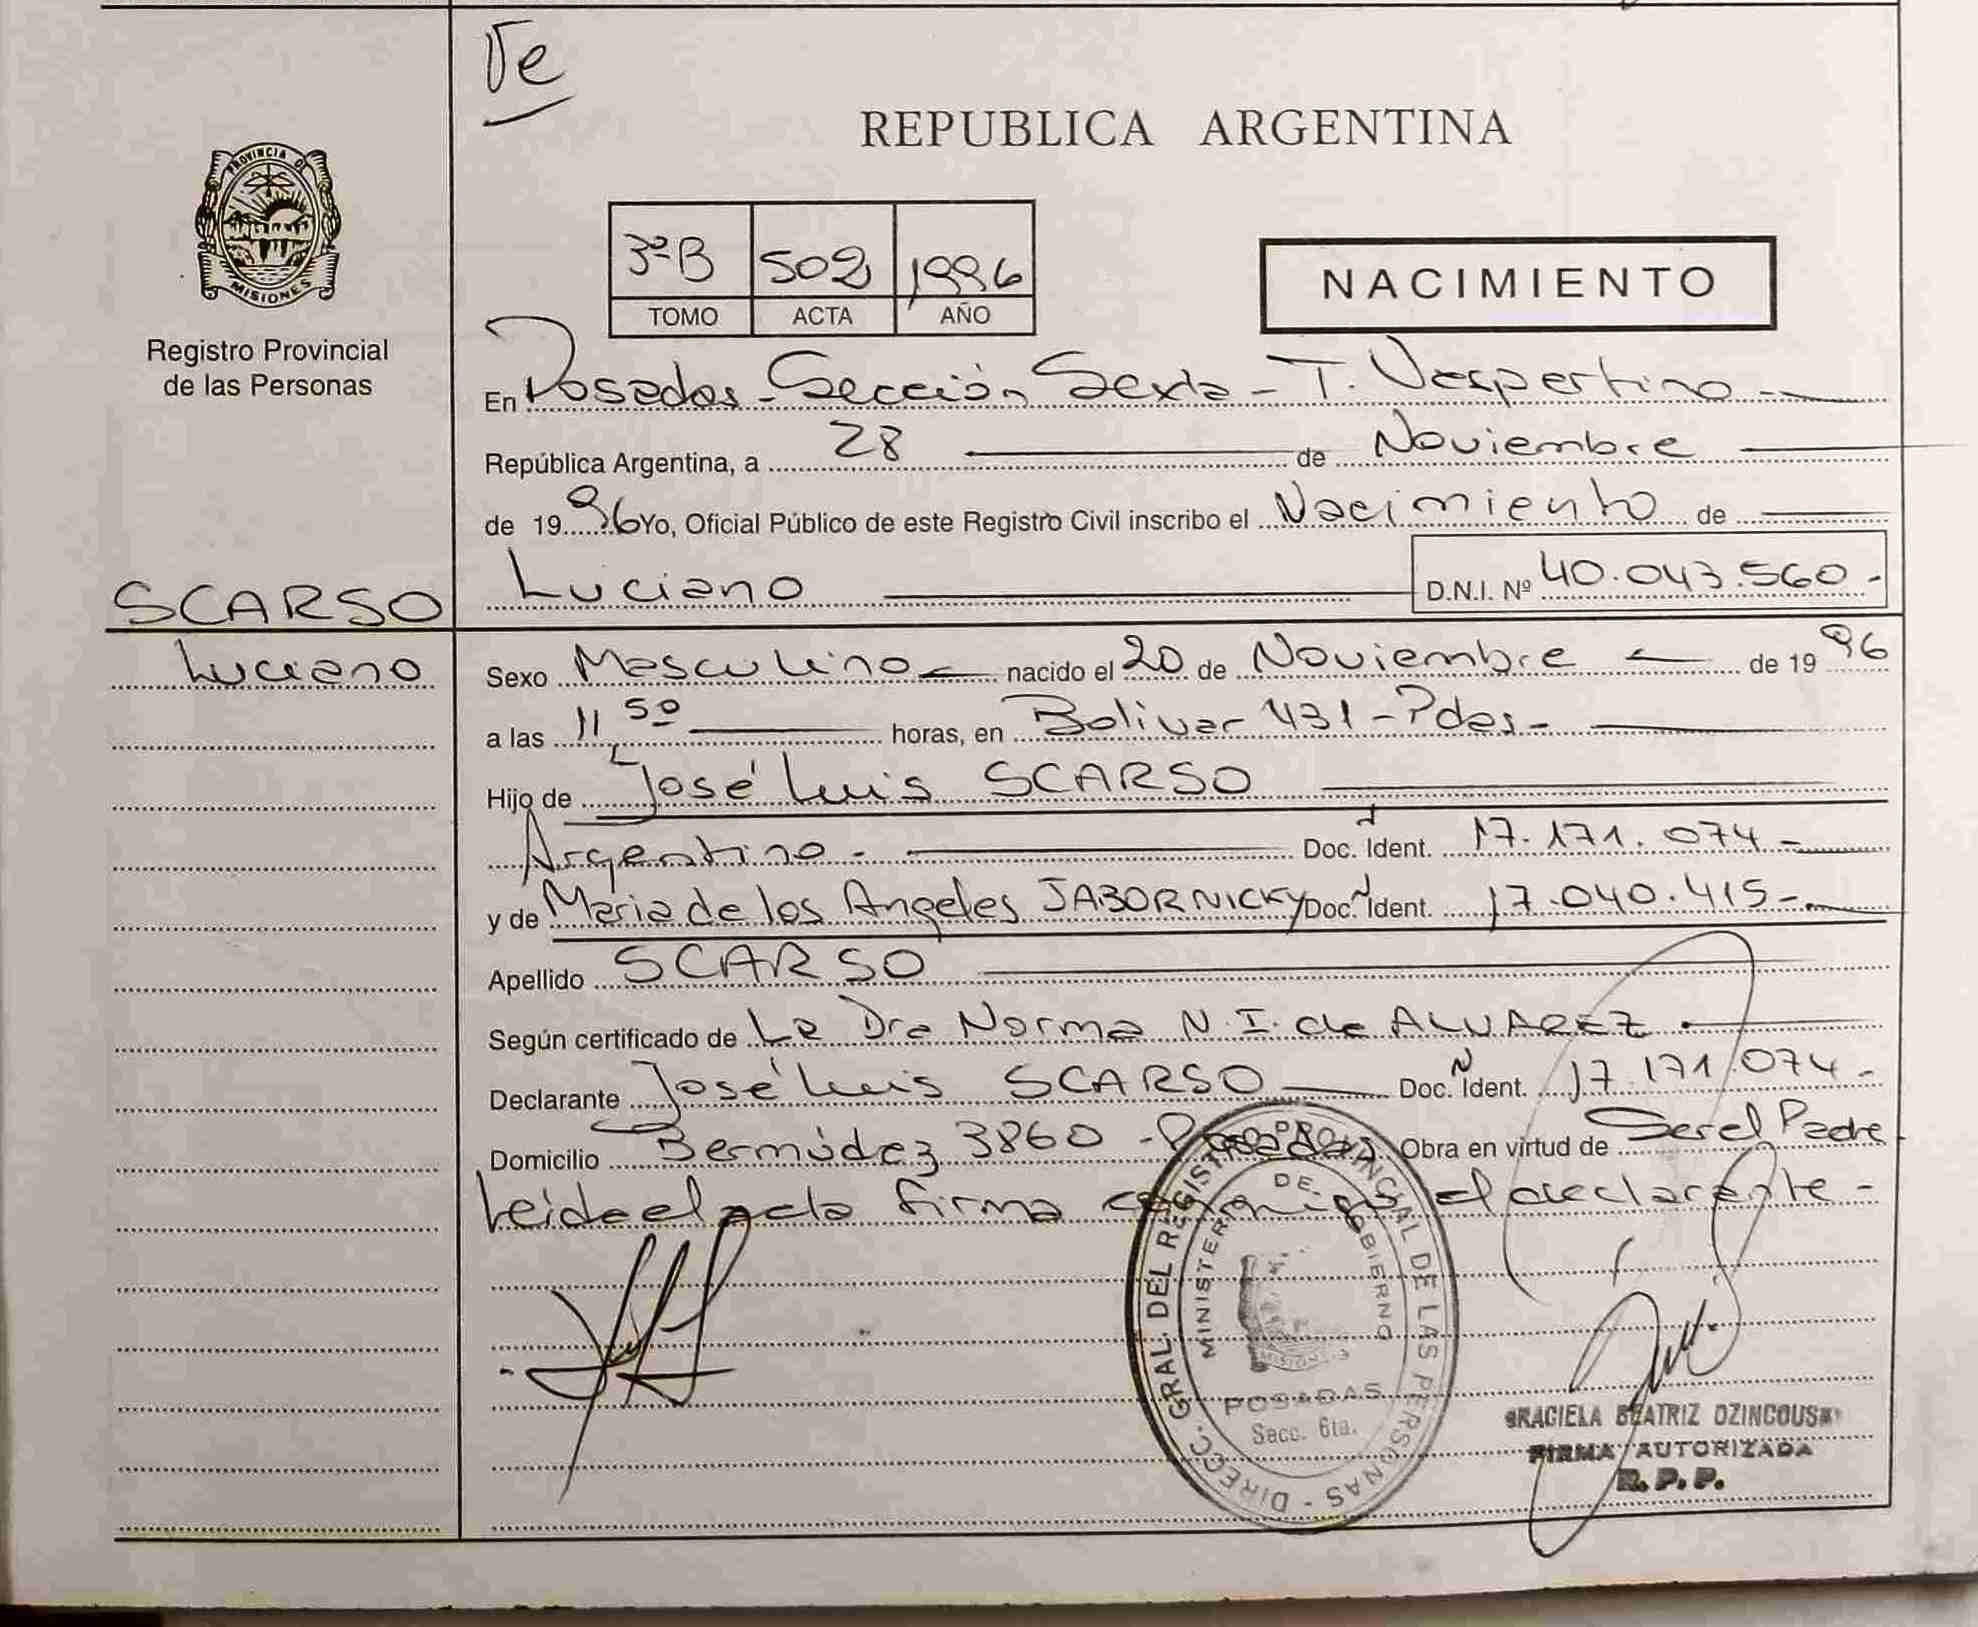 Ve
REPUBLICA ARGENTINA
PROVINCIA DE
MISIONES
Registro Provincial
de las Personas
3ºB 502 1996
TOMO ACTA AÑO
NACIMIENTO
En Posadas - Sección Sexta - T. Vespertino -
República Argentina, a 28 de Noviembre
de 19 96 Yo, Oficial Público de este Registro Civil inscribo el Nacimiento de
Luciano D.N.I. Nº 40.043.560 -
SCARSO
Luciano
Sexo Masculino nacido el 20 de Noviembre de 19 96
a las 11 50 horas, en Bolivar 431 - Pdas -
Hijo de José Luis SCARSO
Argentino - Doc. Ident. 17.171.074 -
y de Maria de los Angeles JABORNICKY Doc. Ident. 17.040.415 -
Apellido SCARSO
Según certificado de La Dra Norma N. I. de ALVAREZ
Declarante José Luis SCARSO Doc. Ident. 17.171.074 -
Domicilio Bermúdez 3860 - Posadas Obra en virtud de Ser el Padre -
Leida el acta firma conmigo el declarante -
DIRECC. GRAL. DEL REGISTRO PROVINCIAL DE LAS PERSONAS -
MINISTERIO DE GOBIERNO
MISIONES
POSADAS
Secc. 6ta.
GRACIELA BEATRIZ
FIRMA AUTORIZADA
R. P. P.